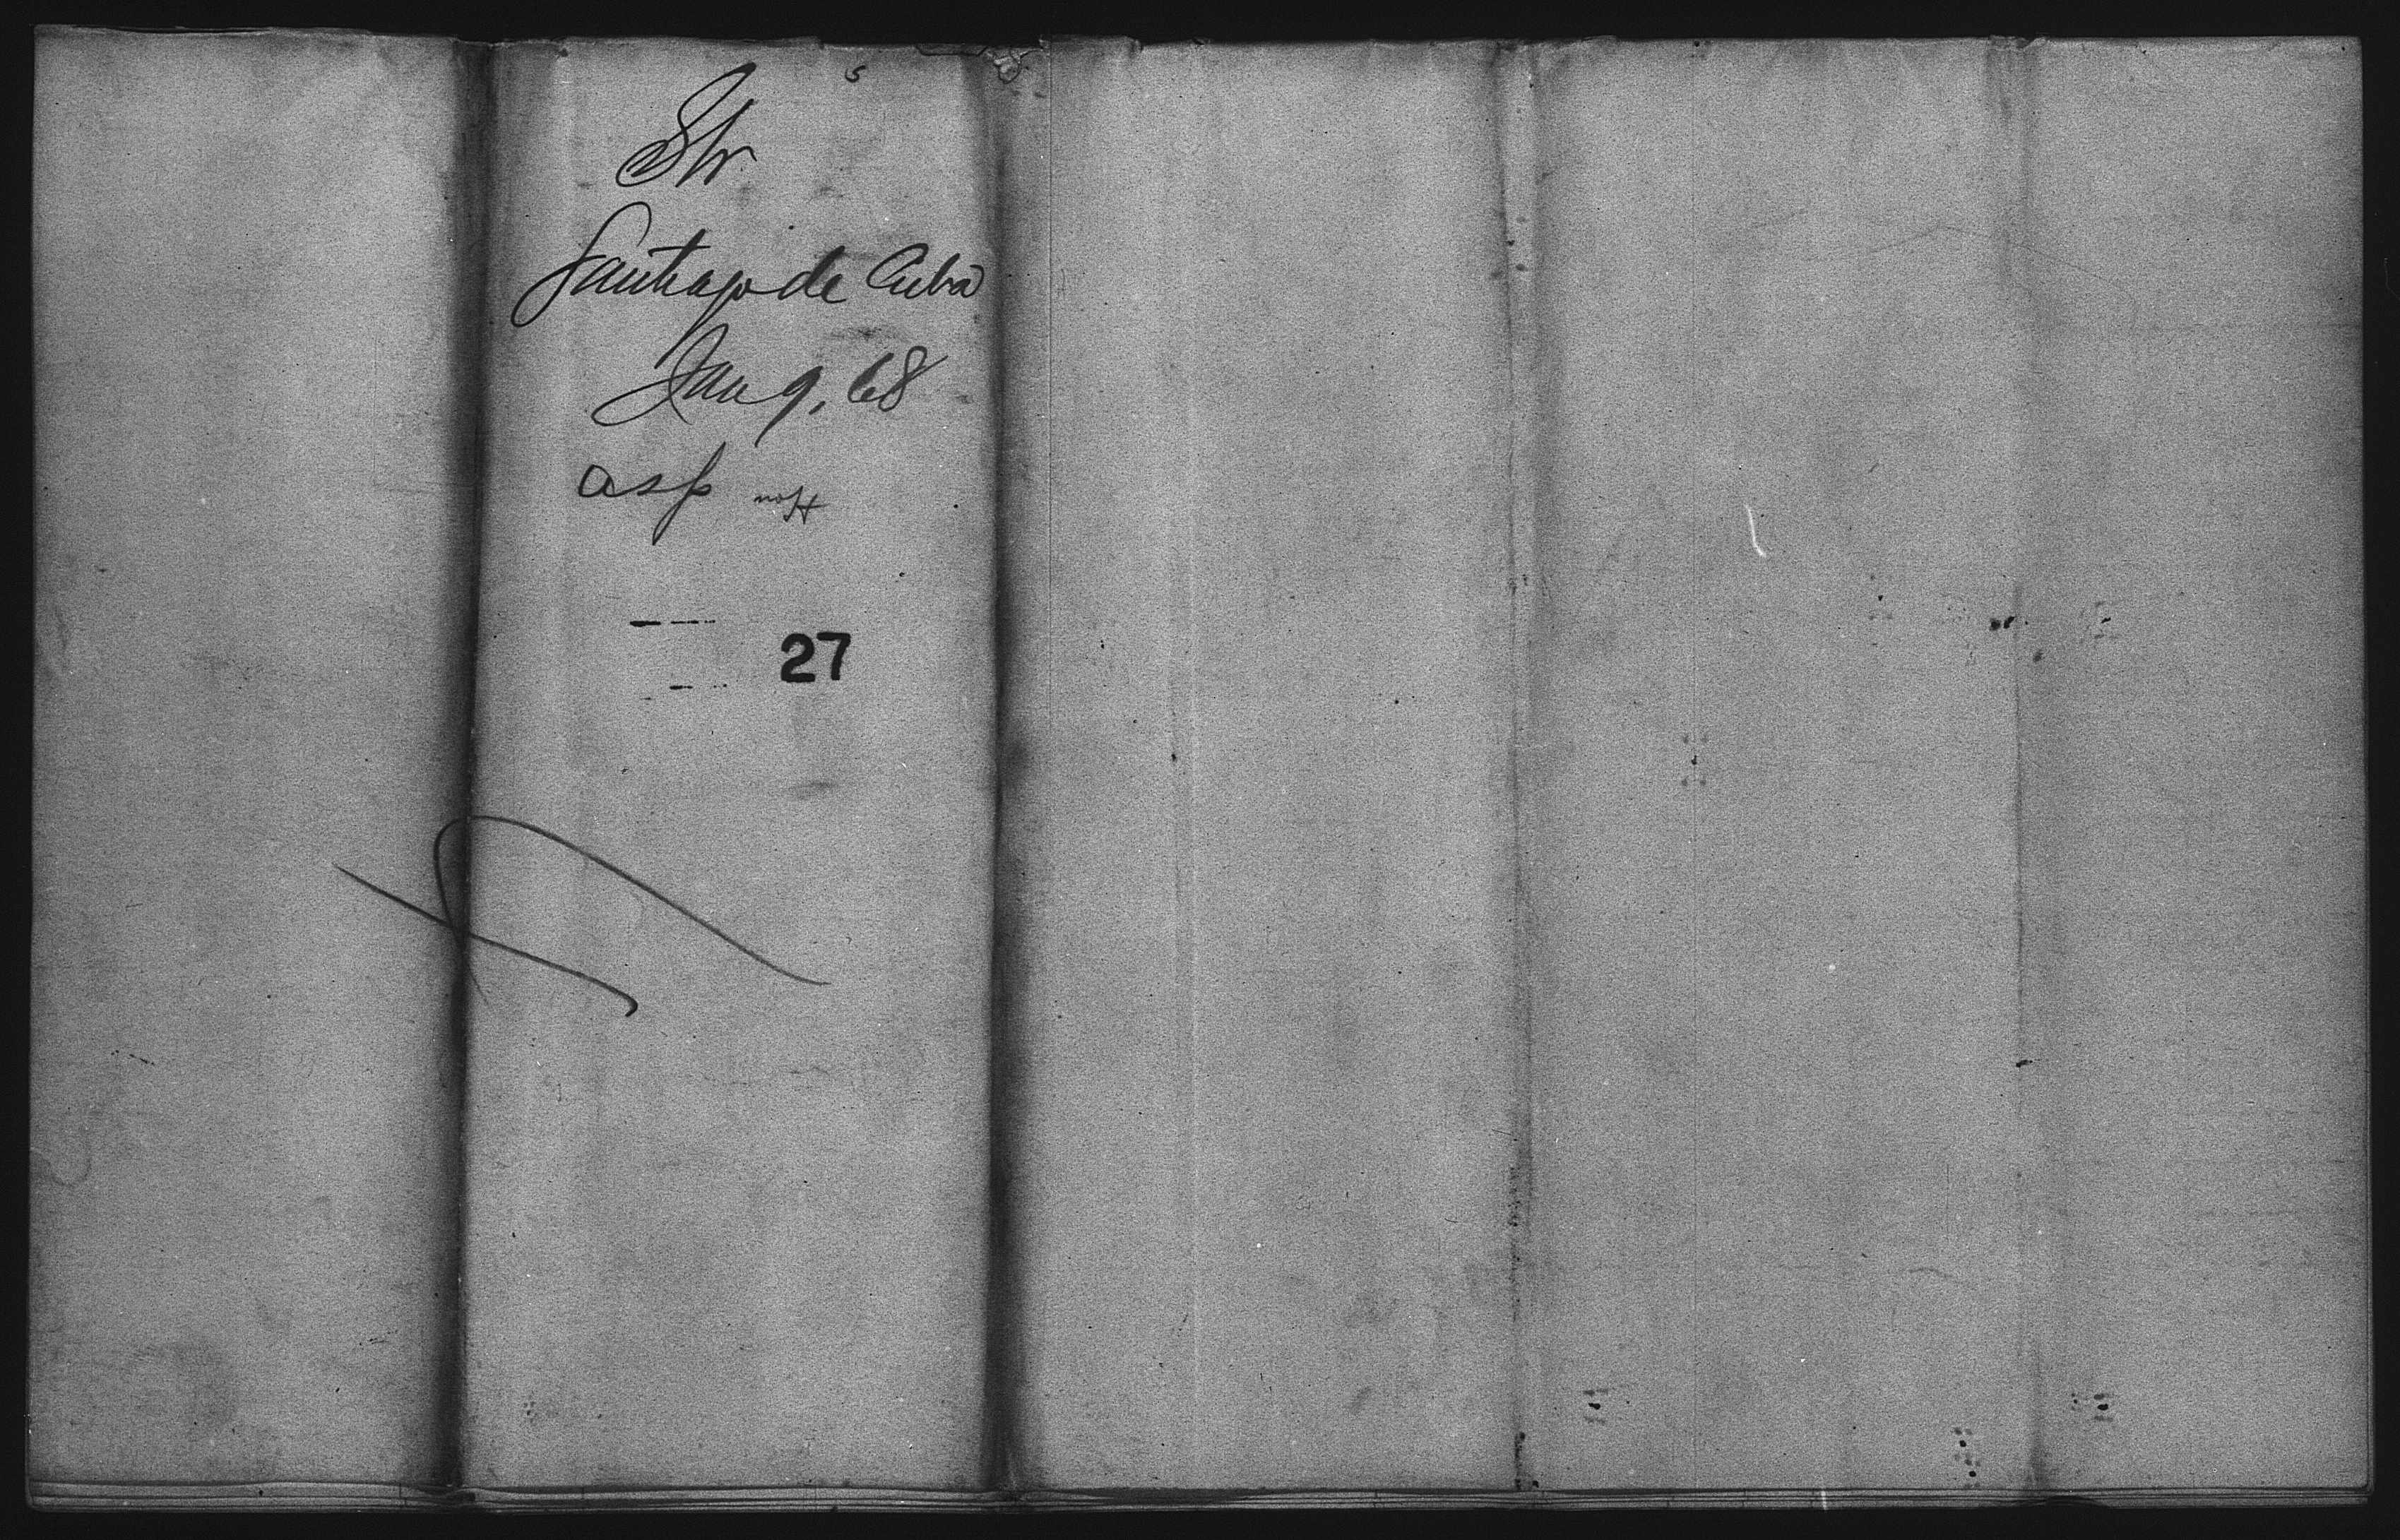 Str
Santiago de Cuba
Jan 9, 68
Asp
27